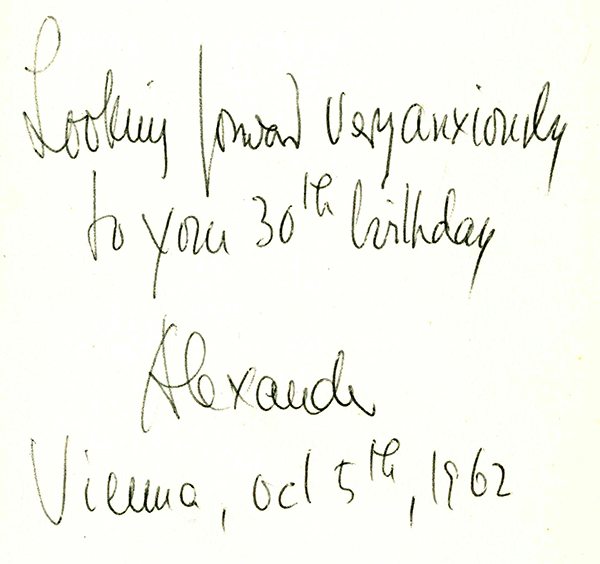 Looking forward very anxiously
to your 30th birthday
Alexander
Vienna, oct 5th, 1962